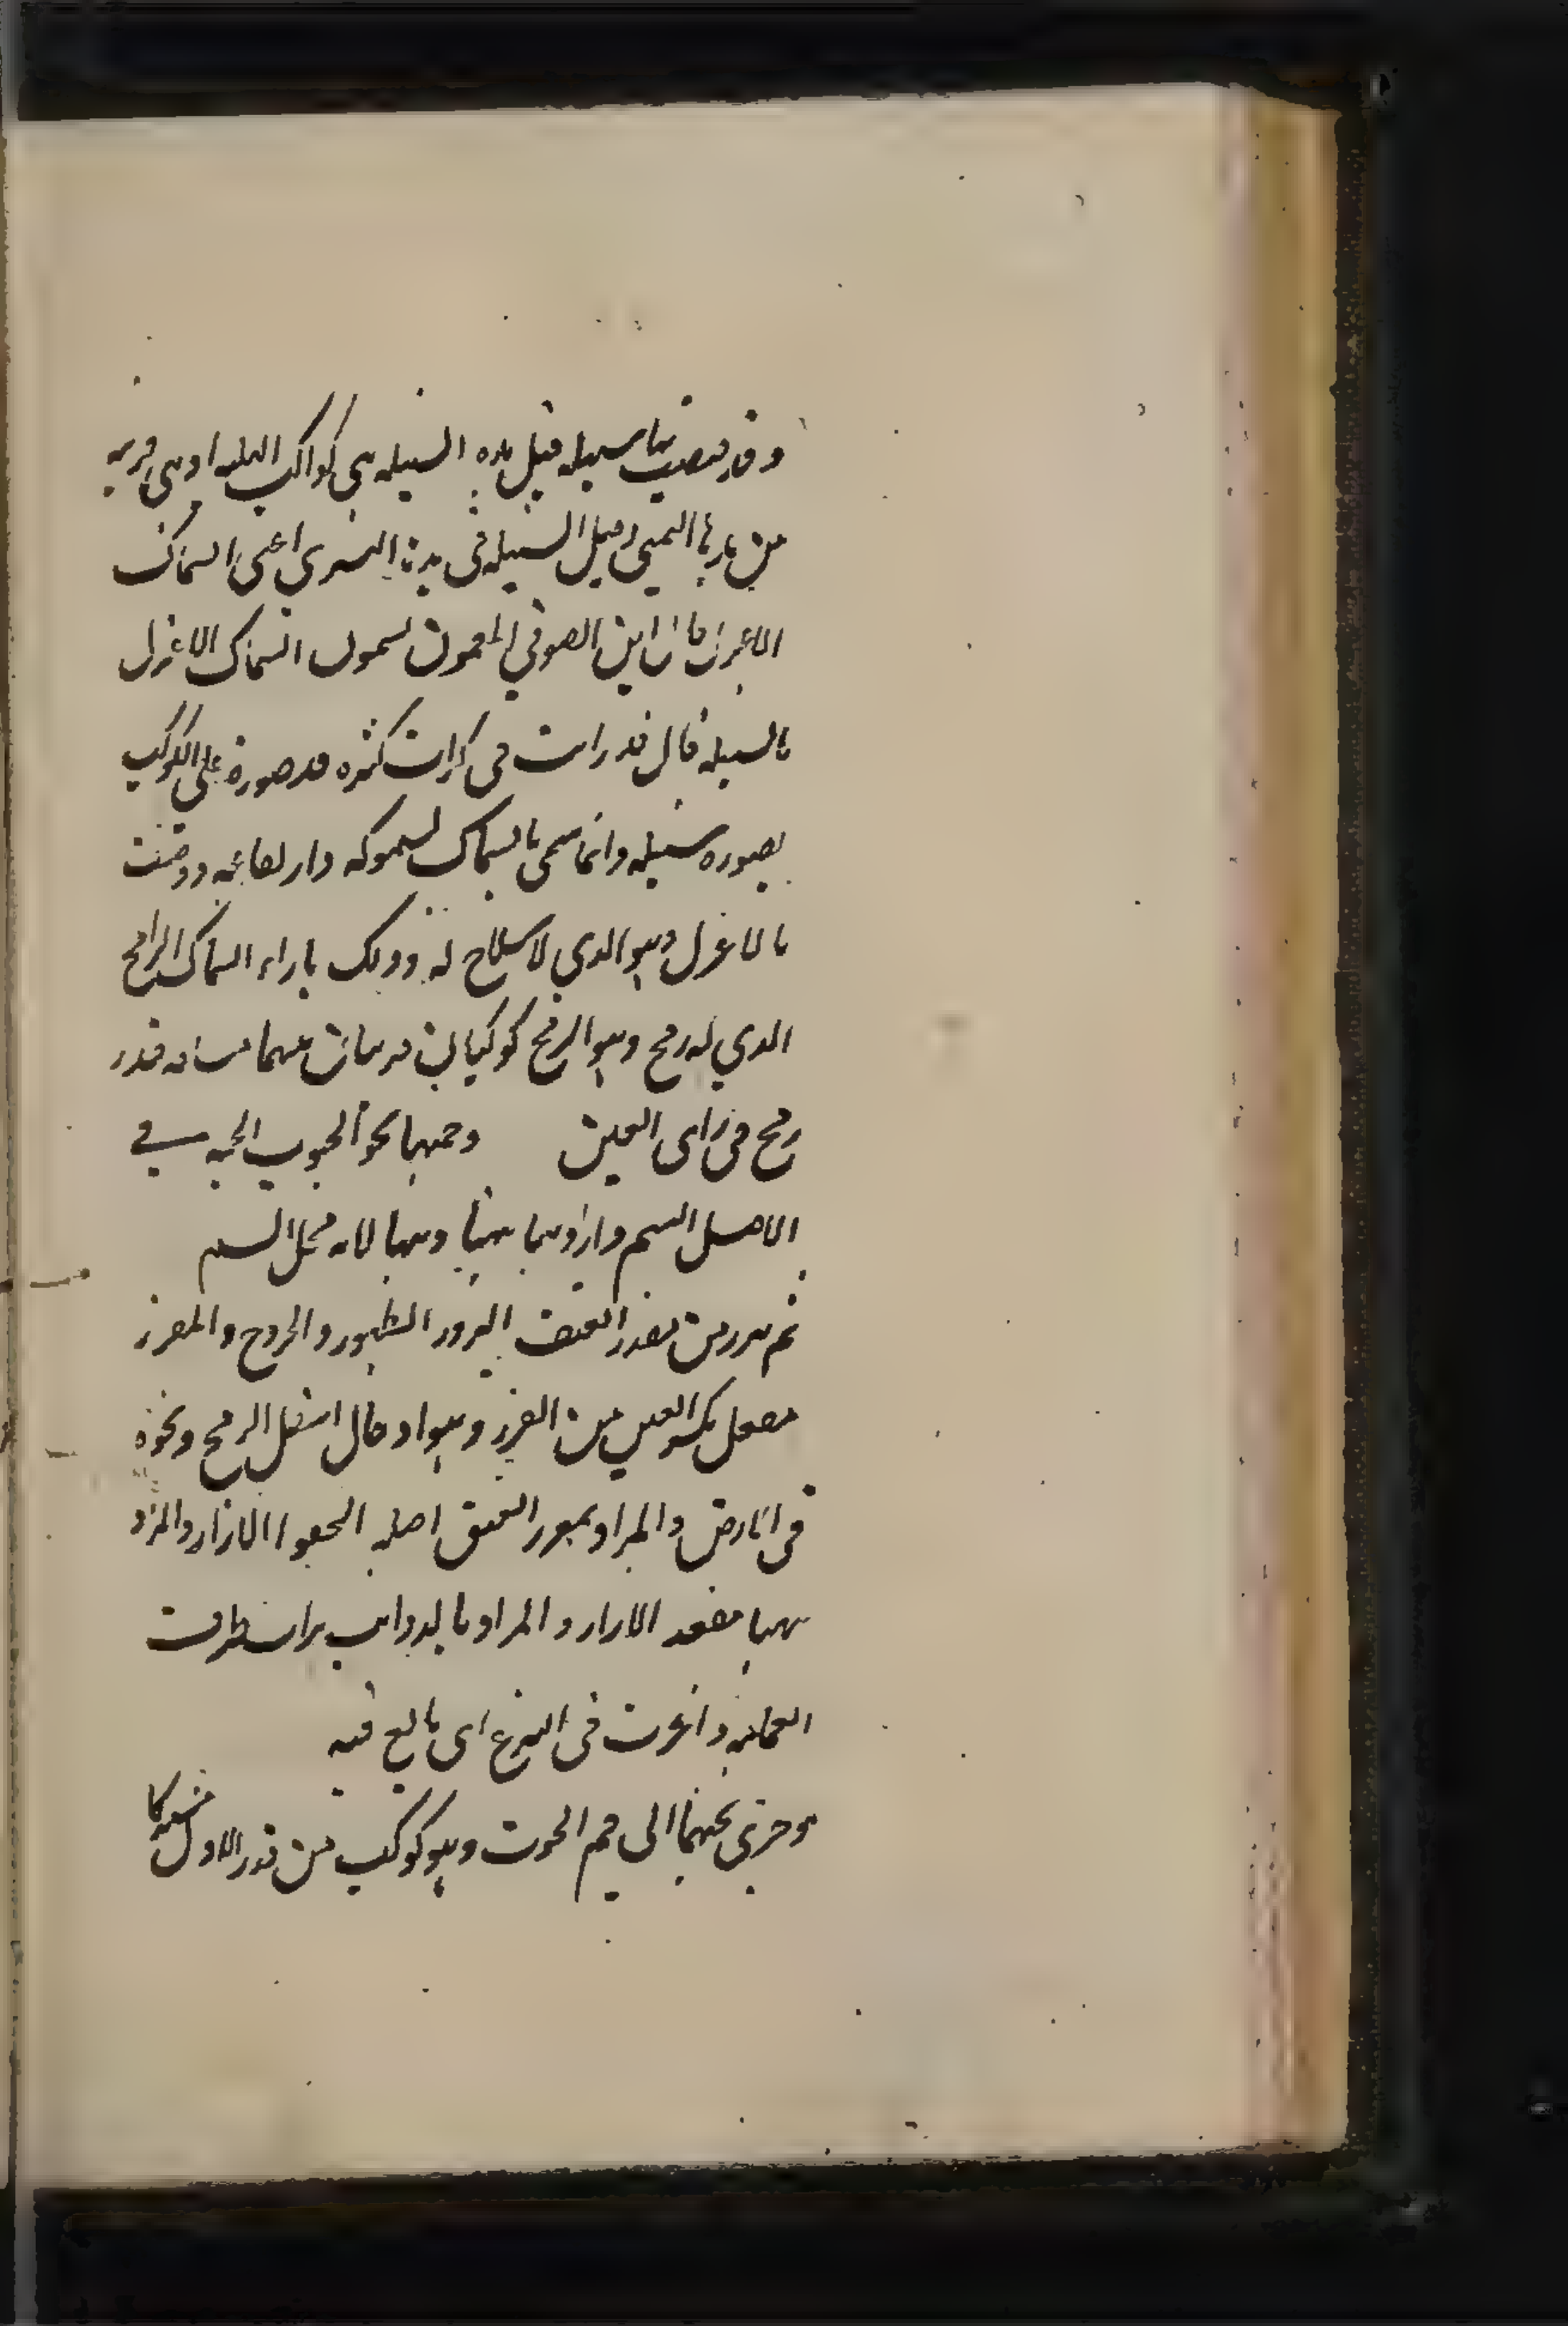 وقد قبضت بها سنبله قيل هذه السنبله هي كواكب الهلبه اذ هي قريبه
من يدها اليمنى وقيل السنبله في يدها اليسرى اعنى السماك
الاعزل فان ابن الصوفي المنجمون يسمون السماك الاعزل
بالسنبله قال قد رايت في كرات كثيره قد صورة على الكوكب
بصوره سنبله وانما سمي بالسماك لسموكه وارتفاعه ووصفت
بالاعزل وهو الذي لا سلاح له وذلك بازاء السماك الرامح
الذي له رمح وهو الرمح كوكبان قريبان بينهما مسافه قدر
رمح في راى العين وجهها نحو الجنوب الجبه في
الاصل السهم وارادها هنا لانه محل السهم
ثم بدر من مغرز العنق البروز الظهور والخروج والمغرز
مفعل بكسر العين من الغرز وهو ادخال اسفل الرمح ونحوه
في الارض والمراد بمغرز العنق اصله الحقو الازار والمراد
ههنا مقعد الازار والمراد بالذوايب
العمامه واغرق في النزع اى بالغ فيه
الى فم الحوت وهو كوكب من قدر الاول